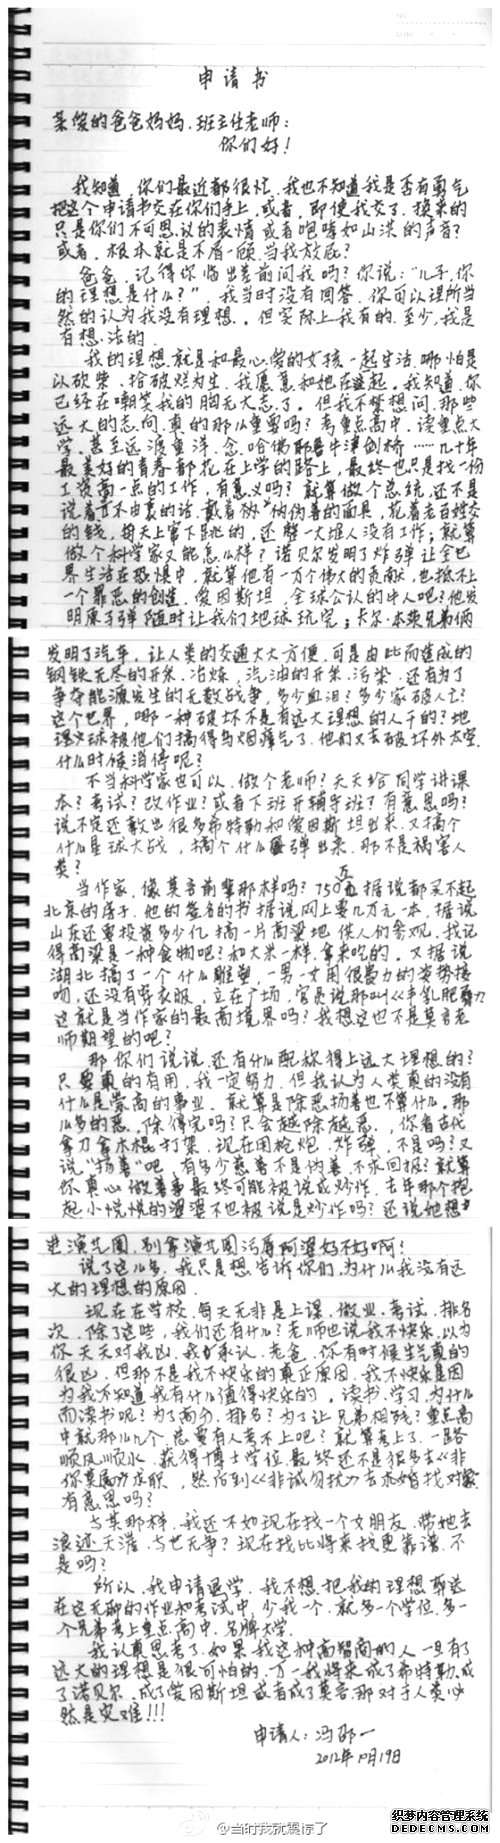 申请书
亲俊的爸爸妈妈.班主任老师：
你们好！
我知道，你们最近都很忙.我也不知道我是否有勇气
把这个申请书交在你们手上，或者，即使我交了.换来的
只是你们不可思议的表情或者咆哮如山洪的声音？
或者.根本就是不屑一顾.当我放屁？
爸爸，记得你临出差前问我吗？你说："儿子.你
的理想是什么？"，我当时没有回答.你可以理所当
然的认为我没有理想.。但实际上我有的.至少.我是
有想法的.
我的理想就是和最心爱的女孩一起生活.哪怕是
以砍柴、捡破烂为生.我愿意和她在一起。我知道.你
已经在嘲笑我的胸无大志了。但我不禁想问.那些
远大的志向.真的那么重要吗？考重点高中、读重点大
学.甚至远渡重洋.念哈佛耶鲁牛津剑桥……几十年
最美好的青春都花在上学的路上，最终也只是找一份
工资高一点的工作，有意义吗？就算做个总统，还不是
说着言不由衷的话.戴着伪善的面具，花着老百姓交
的钱，每天上窜下跳的，还整一大堆人没有工作；就算
做个科学家又能怎么样？诺贝尔发明了炸弹让全世
界生活在恐惧中，就算他有一万个伟大的贡献，也抵不上
一个罪恶的创造.爱因斯坦，全球公认的牛人吧？他发
明原子弹随时让我们地球玩完；卡尔·本茨兄弟俩
发明了汽车，让人类的交通大大方便.可是由此而造成的
钢铁无尽的开采、冶炼，汽油的开采.污染.还有为了
争夺能源发生的无数战争，多少血泪？多少家破人亡？
这个世界，哪一种破坏不是有远大理想的人干的？地
球被他们搞得乌烟瘴气了.他们又去破坏外太空.
什么时候消停呢？
不当科学家也可以.做个老师？天天给同学讲课
本？考试？改作业？或者下班开辅导班？有意思吗？
说不定还教出很多希特勒和爱因斯坦出来.又搞个
什么星球大战，搞个什么弹出来.那不是祸害人
类？
当作家，像莫言前辈那样吗？750万据说都买不起
北京的房子.他的签名的书据说网上要几万元一本，据说
山东还要投资多少亿搞一片高粱地供人们参观.我记
得高粱是一种食物吧？和大米一样.拿来吃的。又据说
湖北搞了一个什么雕塑，一男一女用很暴力的姿势接
吻，还没有穿衣服，立在广场，官员说那叫《丰乳肥臀》
这就是当作家的最高境界吗？我想这也不是莫言老
师期望的吧？
那你们说说.还有什么配称得上远大理想的？
只要真的有用.我一定努力.但我认为人类真的没有
什么是崇高的事业.就算是除恶扬善也不算什么。那
么多的恶，除得完吗？只会越除越恶.，你看古代
拿刀拿木棍打架.现在用枪炮、炸弹，不是吗？又
说"扬善"吧，有多少慈善不是伪善.不求回报？就算
你真心做善事最终可能被说成炒作.去年那个抱
起小悦悦的婆婆不也被说是炒作吗？还说她想
进演艺圈.别拿演艺圈污辱阿婆好不好啊？
说了这么多，我只是想告诉你们.为什么我没有远
大的理想的原因.
现在在学校.每天无非是上课.做业.考试.排名
次.除了这些，我们还有什么？老师也说我不快乐.以为
你天天对我凶.我承认.老爸，你有时候生气真的
很凶.但那不是我不快乐的真正原因.我不快乐是因
为我不知道我有什么值得快乐的。读书、学习.为什么
而读书呢？为了高分，排名？为了让兄弟相残？重点高
中就那么几个总要有人考不上吧？就算考上了.一路
顺风顺水.获得博士学位.最终还不是很多去《非
你莫属》求职，然后到《非诚勿扰》去求婚找对象
有意思吗？
与其那样.我还不如现在找一个女朋友.带她去
浪迹天涯.与世无争？现在找比将来找更靠谱.不
是吗？
所以.我申请退学.我不想把我的理想葬送
在这无聊的作业和考试中.少我一个.就多一个学位.多一
个兄弟考上重点高中、名牌大学.
我认真思考了.如果我这种高智商的人一旦有了
远大的理想是很可怕的.万一我将来成了希特勒.成
了诺贝尔.成了爱因斯坦或者成了莫言.那对于人类必
然是灾难!!!
申请人：冯邵一
2012年10月19日
@当时我就震惊了
织梦内容管理系统
DEDECMS.COM